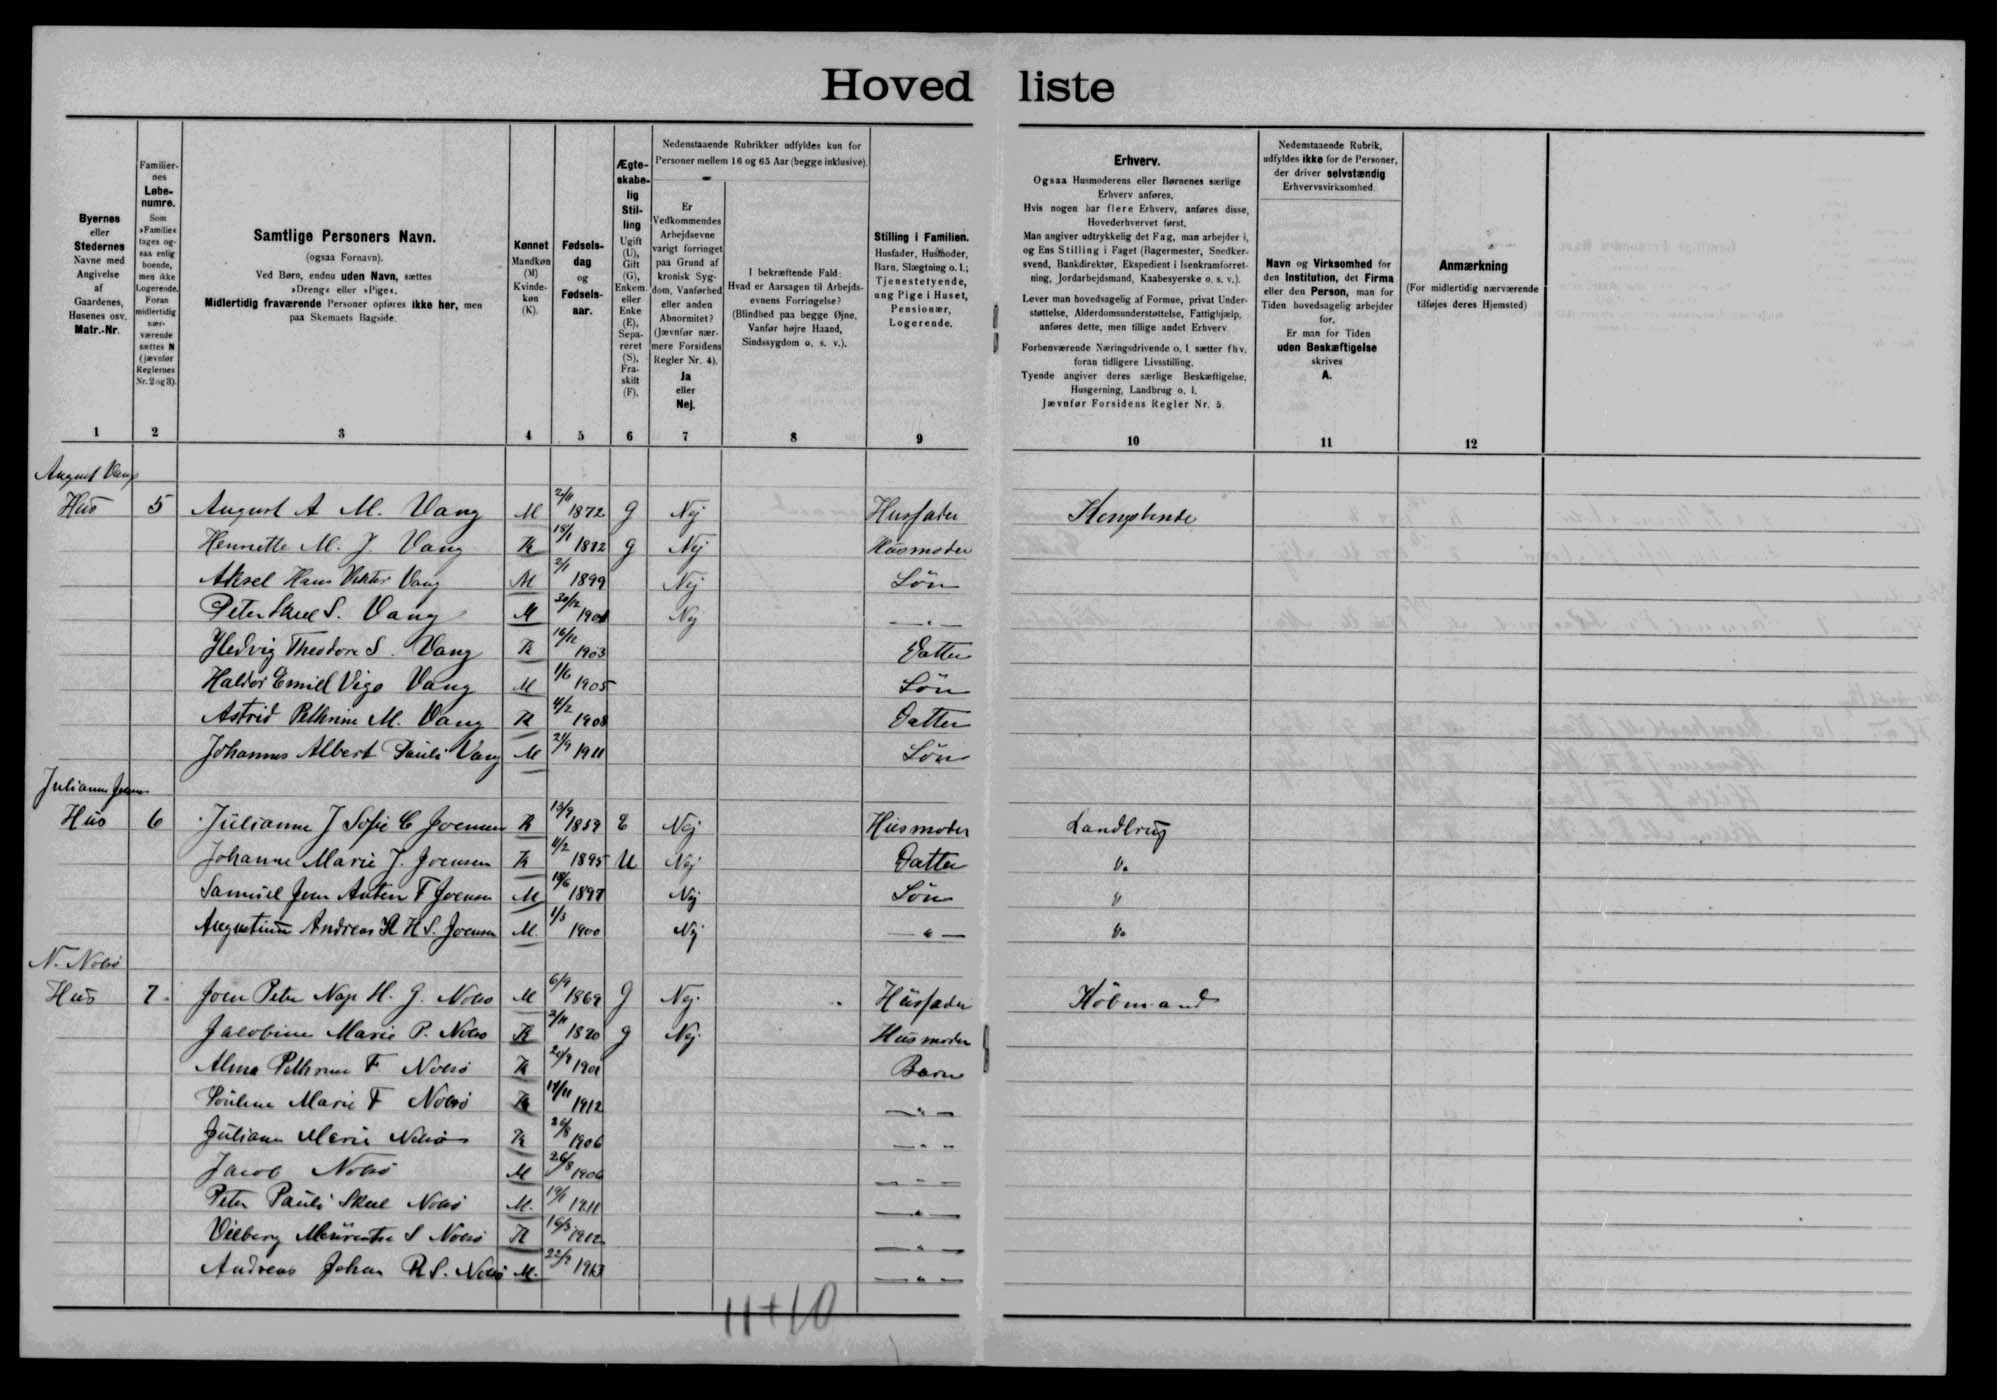 Hovedliste
Byernes eller Stedernes Navne med Angivelse af Gaardenes, Husenes osv. Matr.-Nr.
Familiernes Løbenumre. Som »Familie« tages ogsaa enlig boende, men ikke Logerende. Foran midlertidig nærværende sættes N (jævnfør Reglernes Nr. 2 og 3).
Samtlige Personers Navn.
(ogsaa Fornavn).
Ved Børn, endnu uden Navn, sættes
»Dreng« eller »Pige«.
Midlertidig fraværende Personer opføres ikke her, men
paa Skemaets Bagside.
Kønnet Mandkøn (M) Kvindekøn (K).
Fødselsdag og Fødselsaar.
Ægteskabelig Stilling Ugift (U), Gift (G), Enkem. eller Enke (E), Separeret (S), Fraskilt (F).
Nedenstaaende Rubrikker udfyldes kun for
Personer mellem 16 og 65 Aar (begge inklusive).
Er Vedkommendes Arbejdsevne varigt forringet paa Grund af kronisk Sygdom, Vanførhed eller anden Abnormitet? (Jævnfør nærmere Forsidens Regler Nr. 4). Ja eller Nej.
I bekræftende Fald: Hvad er Aarsagen til Arbejdsevnens Forringelse? (Blindhed paa begge Øjne, Vanfør højre Haand, Sindssygdom o. s. v.).
Stilling i Familien. Husfader, Husmoder, Barn, Slægtning o. l.; Tjenestetyende, ung Pige i Huset, Pensionær, Logerende.
Erhverv.
Ogsaa Husmoderens eller Børnenes særlige
Erhverv anføres.
Hvis nogen har flere Erhverv, anføres disse,
Hovederhvervet først.
Man angiver udtrykkelig det Fag, man arbejder i,
og Ens Stilling i Faget (Bagermester, Snedkersvend, Bankdirektør, Ekspedient i Isenkramforretning, Jordarbejdsmand, Kaabesyerske o. s. v.).
Lever man hovedsagelig af Formue, privat Understøttelse, Alderdomsunderstøttelse, Fattighjælp,
anføres dette, men tillige andet Erhverv.
Forhenværende Næringsdrivende o. l. sætter fhv.
foran tidligere Livsstilling.
Tyende angiver deres særlige Beskæftigelse,
Husgerning, Landbrug o. l.
Jævnfør Forsidens Regler Nr. 5.
Nedenstaaende Rubrik,
udfyldes ikke for de Personer,
der driver selvstændig
Erhvervsvirksomhed.
Navn og Virksomhed for
den Institution, det Firma
eller den Person, man for
Tiden hovedsagelig arbejder
for.
Er man for Tiden
uden Beskæftigelse
skrives
A.
Anmærkning
(For midlertidig nærværende
tilføjes deres Hjemsted)
1 2 3 4 5 6 7 8 9 10 11 12
August Vang
Hus 5 August A M. Vang M 2/11 1872 g Nej Husfader
Henriette M. J. Vang K 18/1 1882 g Nej Husmoder
Aksel Hans Viktor Vang M 2/1 1899 Nej Søn
Peter Skeel S. Vang M 30/12 Nej —"—
Hedvig Theodora S. Vang K 16/12 1903 Datter
Haldor Emiel Vigo Vang M 1/6 1905 Søn
Astrid Pethrine M. Vang K 4/2 1908 Datter
Johannes Albert Pauli Vang M 21/9 1911 Søn
Julianne Joensen
Hus 6 Julianne J Sofie C Joensen K 13/9 1859 E Nej Husmoder Landbrug
Johanne Marie J. Joensen K 4/2 1895 U Nej Datter Do
Samuel Jens Anton F Joensen M 18/6 1897 Nej Søn "
Augustinus Andreas H S. Joensen M 1/3 1900 Nej —"— Do
N. Nolsø
Hus 7. Joen Peter Nap H. J. Nolsø M 6/9 1869 g Nej. Husfader Købmand
Jacobine Marie P. Nolsø K 2/11 1870 g Nej. Husmoder
Alma Pethrine F Nolsø K 20/9 1901 Barn
Pouline Marie F Nolsø K 14/11 1912 —"—
Juliane Marie Nolsø K 26/8 1906 —"—
Jacob Nolsø M 26/8 1906 —"—
Peter Pauli Skeel Nolsø M. 19/1 1911 —"—
Vilberg S Nolsø K 16/3 1912 —"—
Andreas Johan R S. Nolsø M. 22/9 1913 —"—
11+10